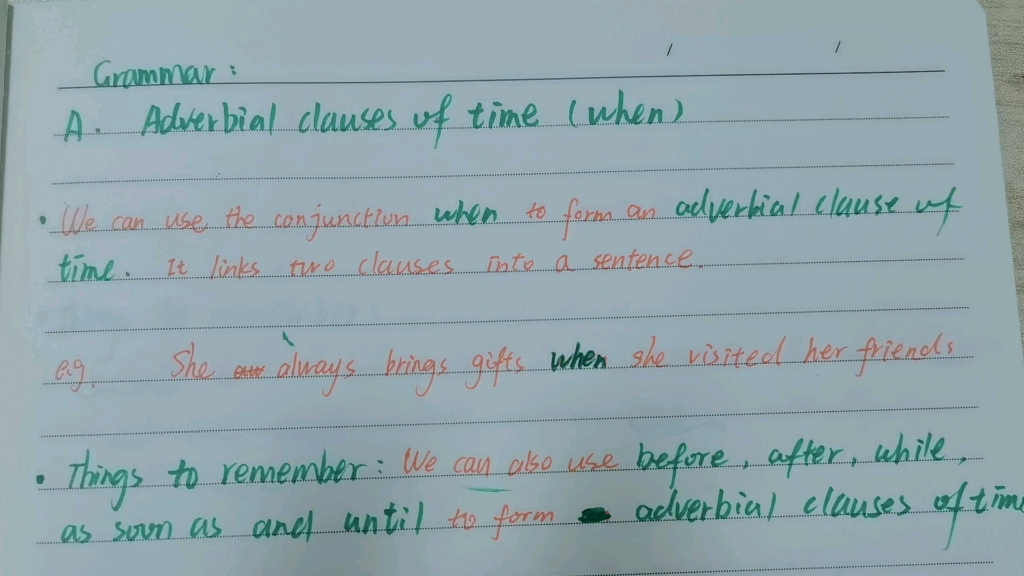 Grammar:
A. Adverbial clauses of time (when)
• We can use the conjunction when to form an adverbial clause of
time. It links two clauses into a sentence.
e.g. She always brings gifts when she visited her friends
• Things to remember: We can also use before, after, while,
as soon as and until to form adverbial clauses of time